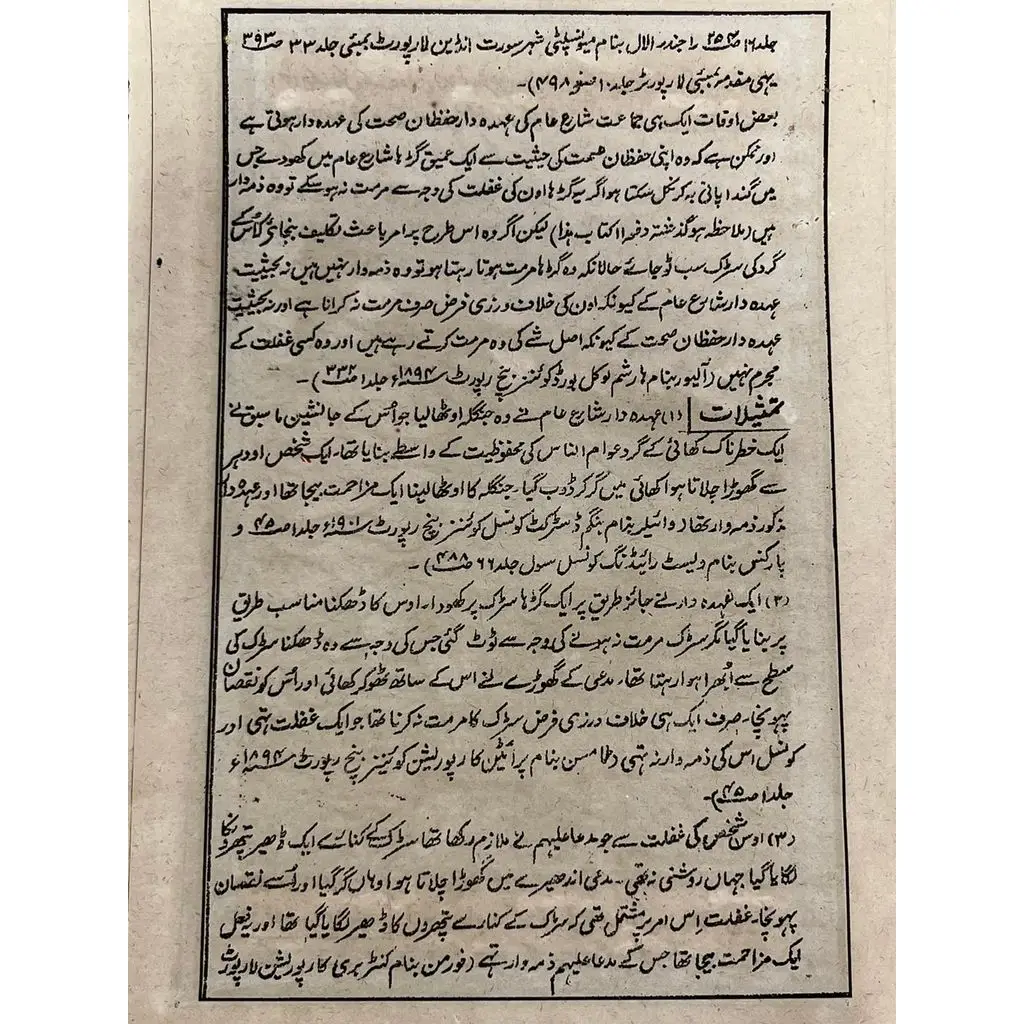 جلد ۱۶ صـ۲۵۴ راجندر الال بنام میونسپلٹی شہر سورت انڈین لا رپورٹ بمبئی جلد ۳۳ صـ۳۹۳
یہی مقدمہ بمبئی لا رپورٹر جلد ۱۰ صفحہ ۴۹۸)۔
بعض اوقات ایک ہی جماعت شارع عام کی عہدہ دار حفظان صحت کی عہدہ دار ہوتی ہے
اور ممکن ہے کہ وہ اپنی حفظان صحت کی حیثیت سے ایک عمیق گڑہا شارع عام میں کھودے جس
میں گندا پانی بہ کر نکل سکتا ہو اگر یہ گڑہا اون کی غفلت کی وجہ سے مرمت نہ ہو سکے تو وہ ذمہ دار
ہیں (ملاحظہ ہو گذشتہ دفعہ ۱ کتاب ہذا) لیکن اگر وہ اس طرح پر امر باعث تکلیف بنجائے کہ اس کے
گرد کی سڑک سب ٹوٹ جائے حالانکہ وہ گڑہا مرمت ہوتا رہتا ہو تو وہ ذمہ دار نہیں ہیں نہ بحیثیت
عہدہ دار شارع عام کے کیونکہ اون کی خلاف ورزی فرض صرف مرمت نہ کرانا ہے اور نہ بحیثیت
عہدہ دار حفظان صحت کے کیونکہ اصل شے کی وہ مرمت کرتے رہے ہیں اور وہ کسی غفلت کے
مجرم نہیں (آلیور بنام ہارشم لوکل بورڈ کوئنز بنچ رپورٹ سنہ ۱۸۹۴ء جلد ۱ صـ۳۳۲)۔
تمثیلات (۱) عہدہ دار شارع عام نے وہ جنگلہ اوٹھا لیا جو اُس کے جانشین ما سبق نے
ایک خطرناک کھائی کے گرد عوام الناس کی محفوظیت کے واسطے بنایا تھا۔ ایک شخص اودہر
سے گھوڑا چلاتا ہوا کھائی میں گر کر ڈوب گیا۔ جنگلہ کا اوٹھا لینا ایک مزاحمت بیجا تھا اور عہدہ دار
مذکور ذمہ وار تھا (وائیلر بنام بنگم ڈسٹرکٹ کونسل کوئنز بنچ رپورٹ سنہ ۱۹۰۱ء جلد ۱ صـ۴۵ و
پارکنس بنام ولیسٹ رائیڈنگ کونسل سول جلد ۶۶ صـ۴۸۸)۔
(۲) ایک عہدہ دار نے جائز طریق پر ایک گڑہا سڑک پر کھودا۔ اوس کا ڈھکنا مناسب طریق
پر بنایا گیا مگر سڑک مرمت نہ ہونے کی وجہ سے ٹوٹ گئی جس کی وجہ سے وہ ڈھکنا سڑک کی
سطح سے اُبھرا ہوا رہتا تھا۔ مدعی کے گھوڑے نے اس کے ساتھ ٹھوکر کھائی اور اُس کو نقصان
پہونچا۔ صرف ایک ہی خلاف ورزی فرض سڑک کا مرمت نہ کرنا تھا جو ایک غفلت تہی اور
کونسل اس کی ذمہ وار نہ تہی (طامسن بنام برائیٹن کارپوریشن کوئینز بنچ رپورٹ سنہ ۱۸۹۴ء
جلد ۱ صـ۴۵)۔
(۳) اوس شخص کی غفلت سے جو مدعا علیہم نے ملازم رکھا تھا سڑک کے کنارے ایک ڈھیر پتھروں کا
لگایا گیا جہاں روشنی نہ تھی۔ مدعی اندھیرے میں گھوڑا چلاتا ہوا وہاں گر گیا اور اُسے نقصان
پہونچا۔ غفلت اِس امر پر مشتمل تھی کہ سڑک کے کنارے پتھروں کا ڈھیر لگایا گیا تھا اور یہ فعل
ایک مزاحمت بیجا تھا جس کے مدعا علیہم ذمہ وار تہے (فورمن بنام کنٹربری کارپوریشن لا رپورٹ